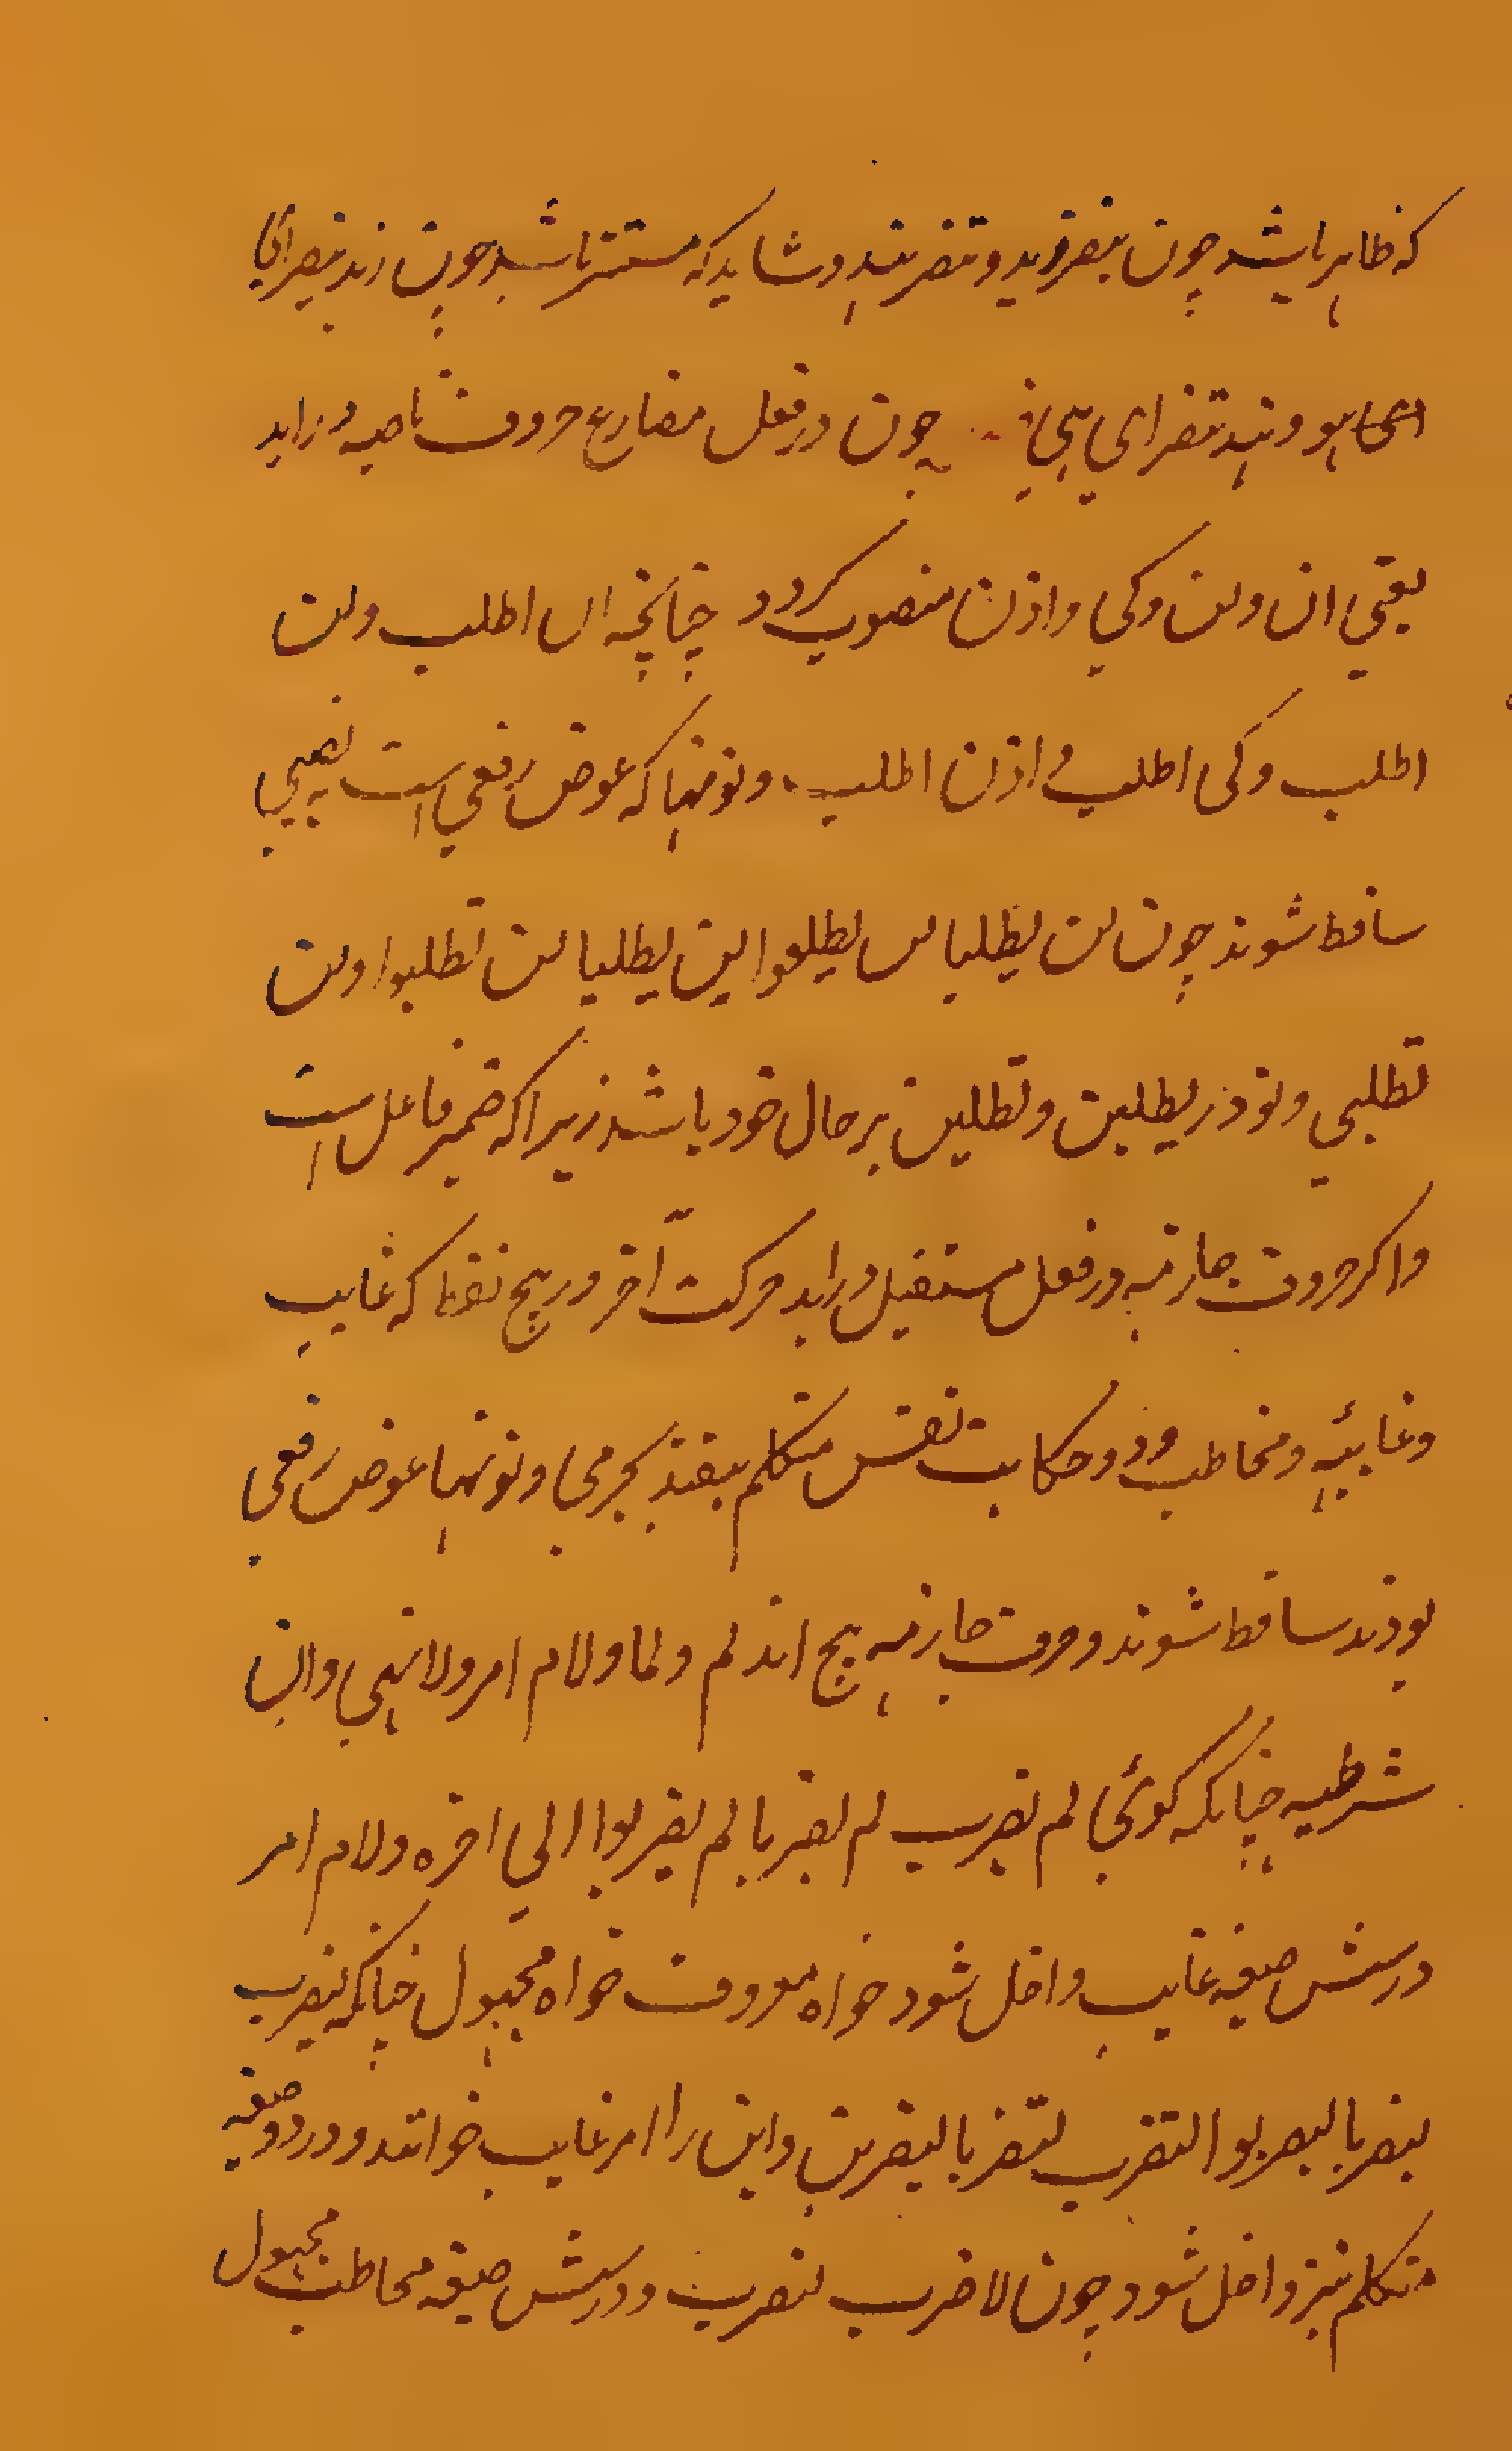 که ظاهر باشد چون ینصر زید و تنصر هند و شاید که مستتر باشد چون زید ینصر ای
ای هو و هند تنصر ای هی چون در فعل مضارع حروف ناصبه دراید
یعنی ان ولن وکی واذن منصوب کردد چنانچه ان اطلب ولن
اطلب وکی اطلب و اذن اطلب و نونها که عوض رفعی است بنصبی
ساقط شوند چون لن یطلبا لن یطلبوا لن یطلبا لن تطلبوا ولن
تطلبی و نون در یطلبن و تطلبن بر حال خود باشد زیرا که ضمیر فاعل است
واکر حروف جازمه در فعل مستقبل دراید حرکت آخر در پنج لفظ که غایب
و غائبه و مخاطب و دو حکایت نفس متکلم بیفتد بجزمی و نونها عوض رفعی
بودند ساقط شوند و حروف جازمه پنج اند لم ولما ولام امر ولا نهی وان
شرطیه چنانکه کوئی لم یضرب لم یضربا لم یضربوا الی اخره ولام امر
در شش صیغه غایب داخل شود خواه معروف خواه مجهول چنانکه لیضرب
لیضربا لیضربوا لتضرب لتضربا لیضربن و این را امر غایب خوانند و در دو صیغه
متکلم نیز داخل شود چون لاضرب لنضرب و در شش صیغه مخاطب مجهول